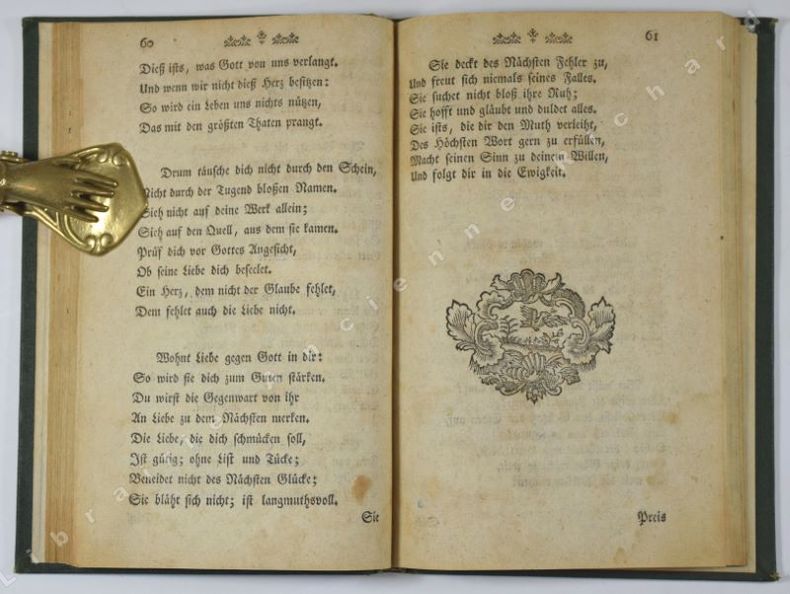 60
Dieß ists, was Gott von uns verlangt.
Und wenn wir nicht dieß Herz besitzen:
So wird ein Leben uns nichts nützen,
Das mit den größten Thaten prangt.
Drum täusche dich nicht durch den Schein,
Nicht durch der Tugend bloßen Namen.
Sieh nicht auf deine Werk allein;
Sieh auf den Quell, aus dem sie kamen.
Prüf dich vor Gottes Angesicht,
Ob seine Liebe dich beseelet.
Ein Herz, dem nicht der Glaube fehlet,
Dem fehlet auch die Liebe nicht.
Wohnt Liebe gegen Gott in dir:
So wird sie dich zum Guten stärken.
Du wirst die Gegenwart von ihr
An Liebe zu dem Nächsten merken.
Die Liebe, die dich schmücken soll,
Ist gütig; ohne List und Tücke;
Beneidet nicht des Nächsten Glücke;
Sie bläht sich nicht; ist langmuthsvoll.
Sie
61
Sie deckt des Nächsten Fehler zu,
Und freut sich niemals seines Falles.
Sie suchet nicht bloß ihre Ruh;
Sie hofft und gläubt und duldet alles.
Sie ists, die dir den Muth verleiht,
Des Höchsten Wort gern zu erfüllen,
Macht seinen Sinn zu deinem Willen,
Und folgt dir in die Ewigkeit.
Preis